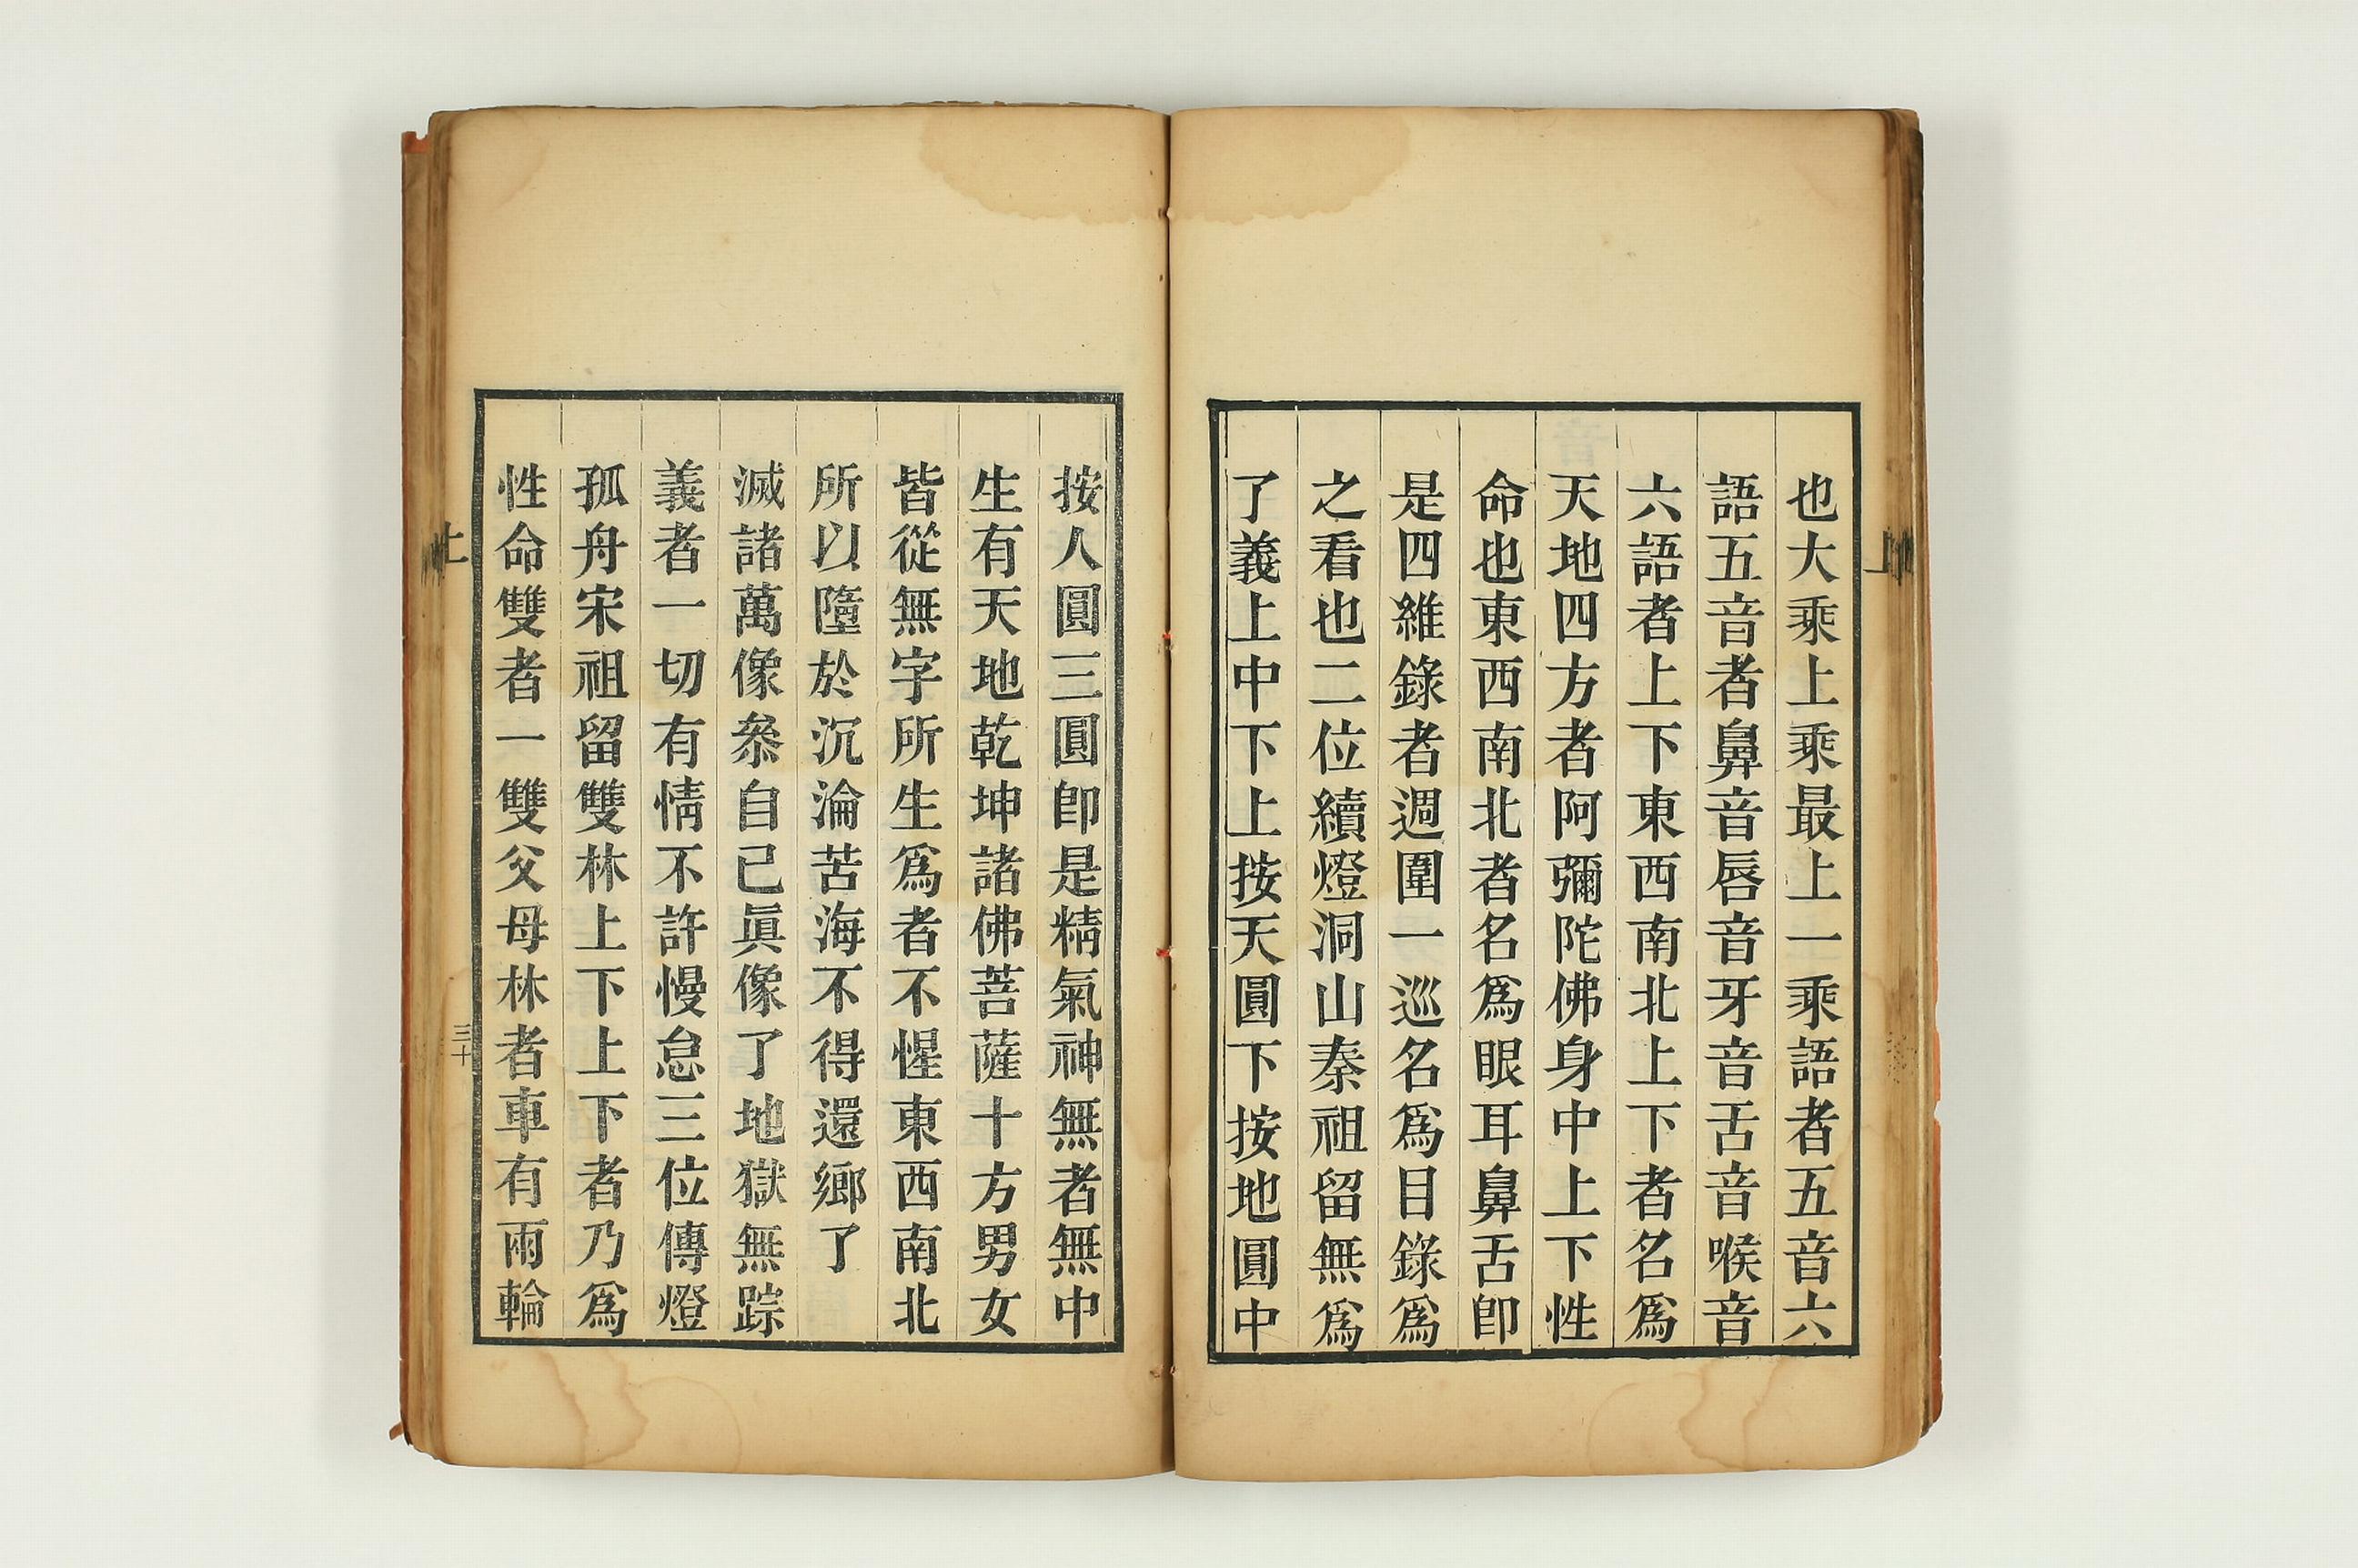 也大乘上乘最上一乘語者五音六
語五音者鼻音唇音牙音舌音喉音
六語者上下東西南北上下者名爲
天地四方者阿彌陀佛身中上下性
命也東西南北者名爲眼耳鼻舌卽
是四維錄者週圍一巡名爲目錄爲
之看也二位續燈洞山秦祖留無爲
了義上中下上按天圓下按地圓中
按人圓三圓卽是精氣神無者無中
生有天地乾坤諸佛菩薩十方男女
皆從無字所生爲者不惺東西南北
所以墮於沉淪苦海不得還鄉了
滅諸萬像叅自己眞像了地獄無踪
義者一切有情不許慢怠三位傳燈
孤舟宋祖留雙林上下上下者乃爲
性命雙者一雙父母林者車有兩輪
上
三十